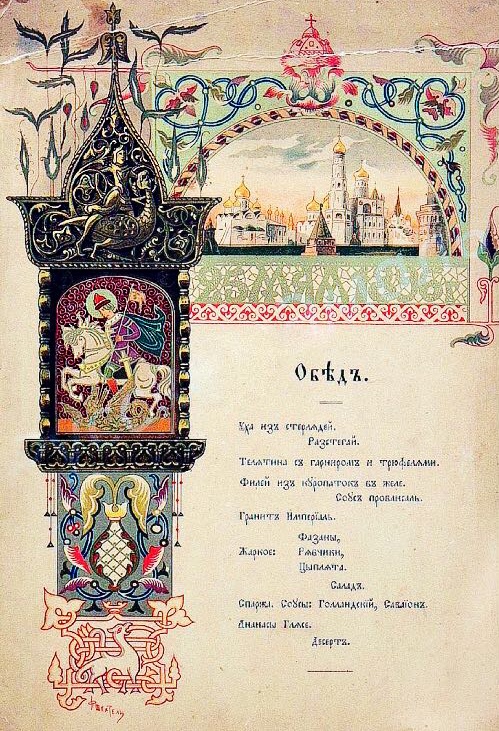 Обѣдъ.
Уха изъ стерлядей.
Разстегаи.
Телятина съ гарниромъ и трюфелями.
Филей изъ куропатокъ въ желе.
Соусъ провансаль.
Гранитъ Имперіаль.
Фазаны,
Жаркое: Рябчики,
Цыплята.
Саладъ.
Спаржа. Соусы: Голландскій, Сабаіонъ.
Ананасы Гляссе.
Десертъ.